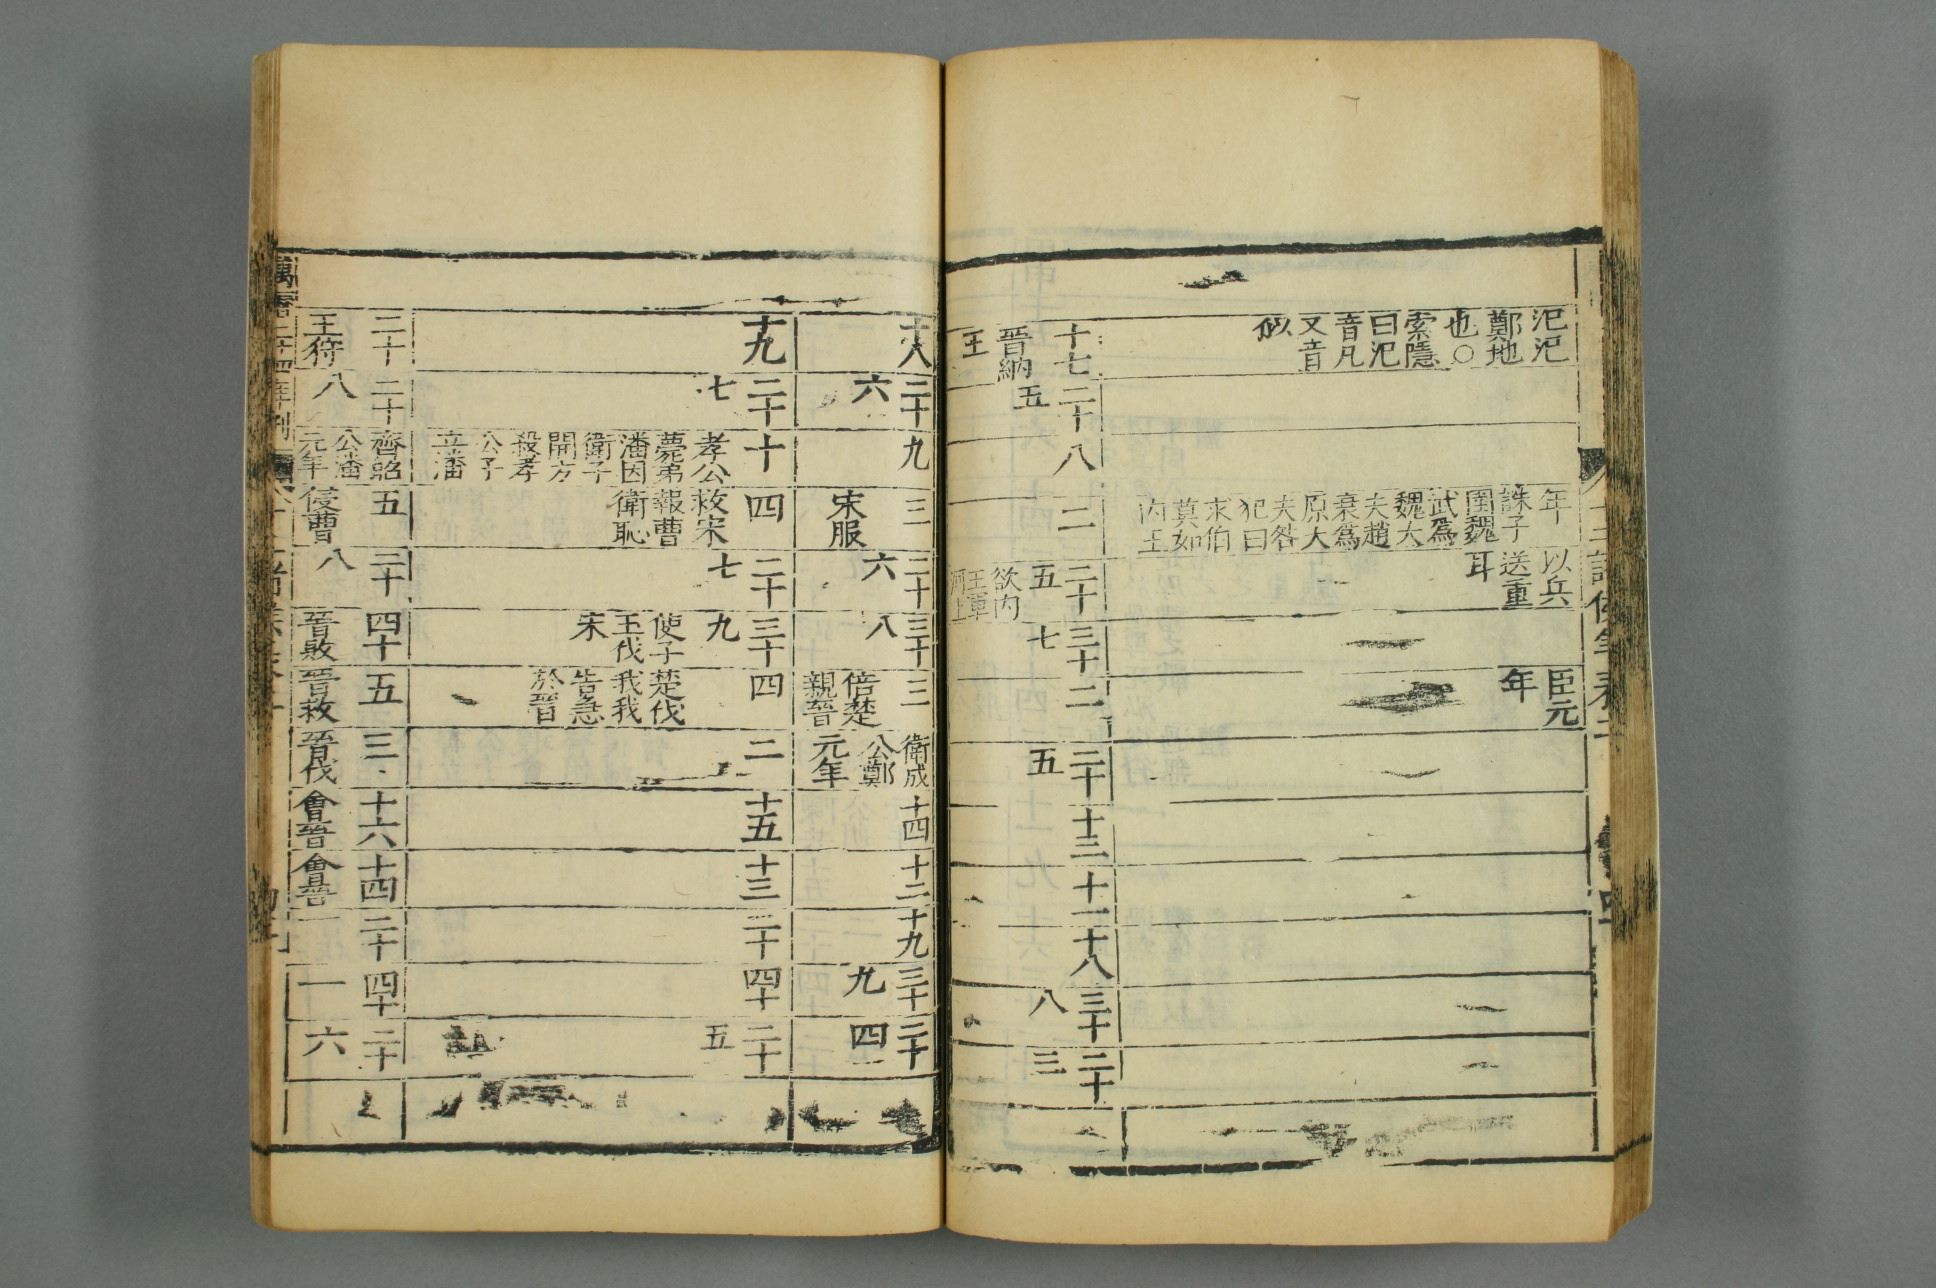 氾氾
鄭地
也○
索隱
曰氾
音凡
又音
似
年
誅子
圉魏
武爲
魏大
夫趙
衰爲
原大
夫咎
犯曰
求伯
莫如
内王
以兵
送重
耳
臣元
年
十七
晉納
王
二十
五
八
二
二十
五
欲内
王軍
河上
三十
七
二
二十
五
十三
十一
十八
三十
八
二十
三
十八
二十
六
九
三
宋服
二十
六
三十
八
三
倍楚
親晉
衛成
公鄭
元年
十四
十二
十九
三十
九
二十
四
十九
二十
七
十
孝公
薨弟
潘因
衛子
開方
殺孝
公子
立潘
四
救宋
報曹
衛恥
二十
七
三十
九
使子
玉伐
宋
四
楚伐
我我
告急
於晉
二
十五
十三
二十
四十
二十
五
二十
王狩
二十
八
齊昭
公潘
元年
五
侵曹
二十
八
四十
晉敗
五
晉救
三
晉伐
十六
會晉
十四
會晉
二十
一
四十
一
二十
六
萬曆二十四年刊